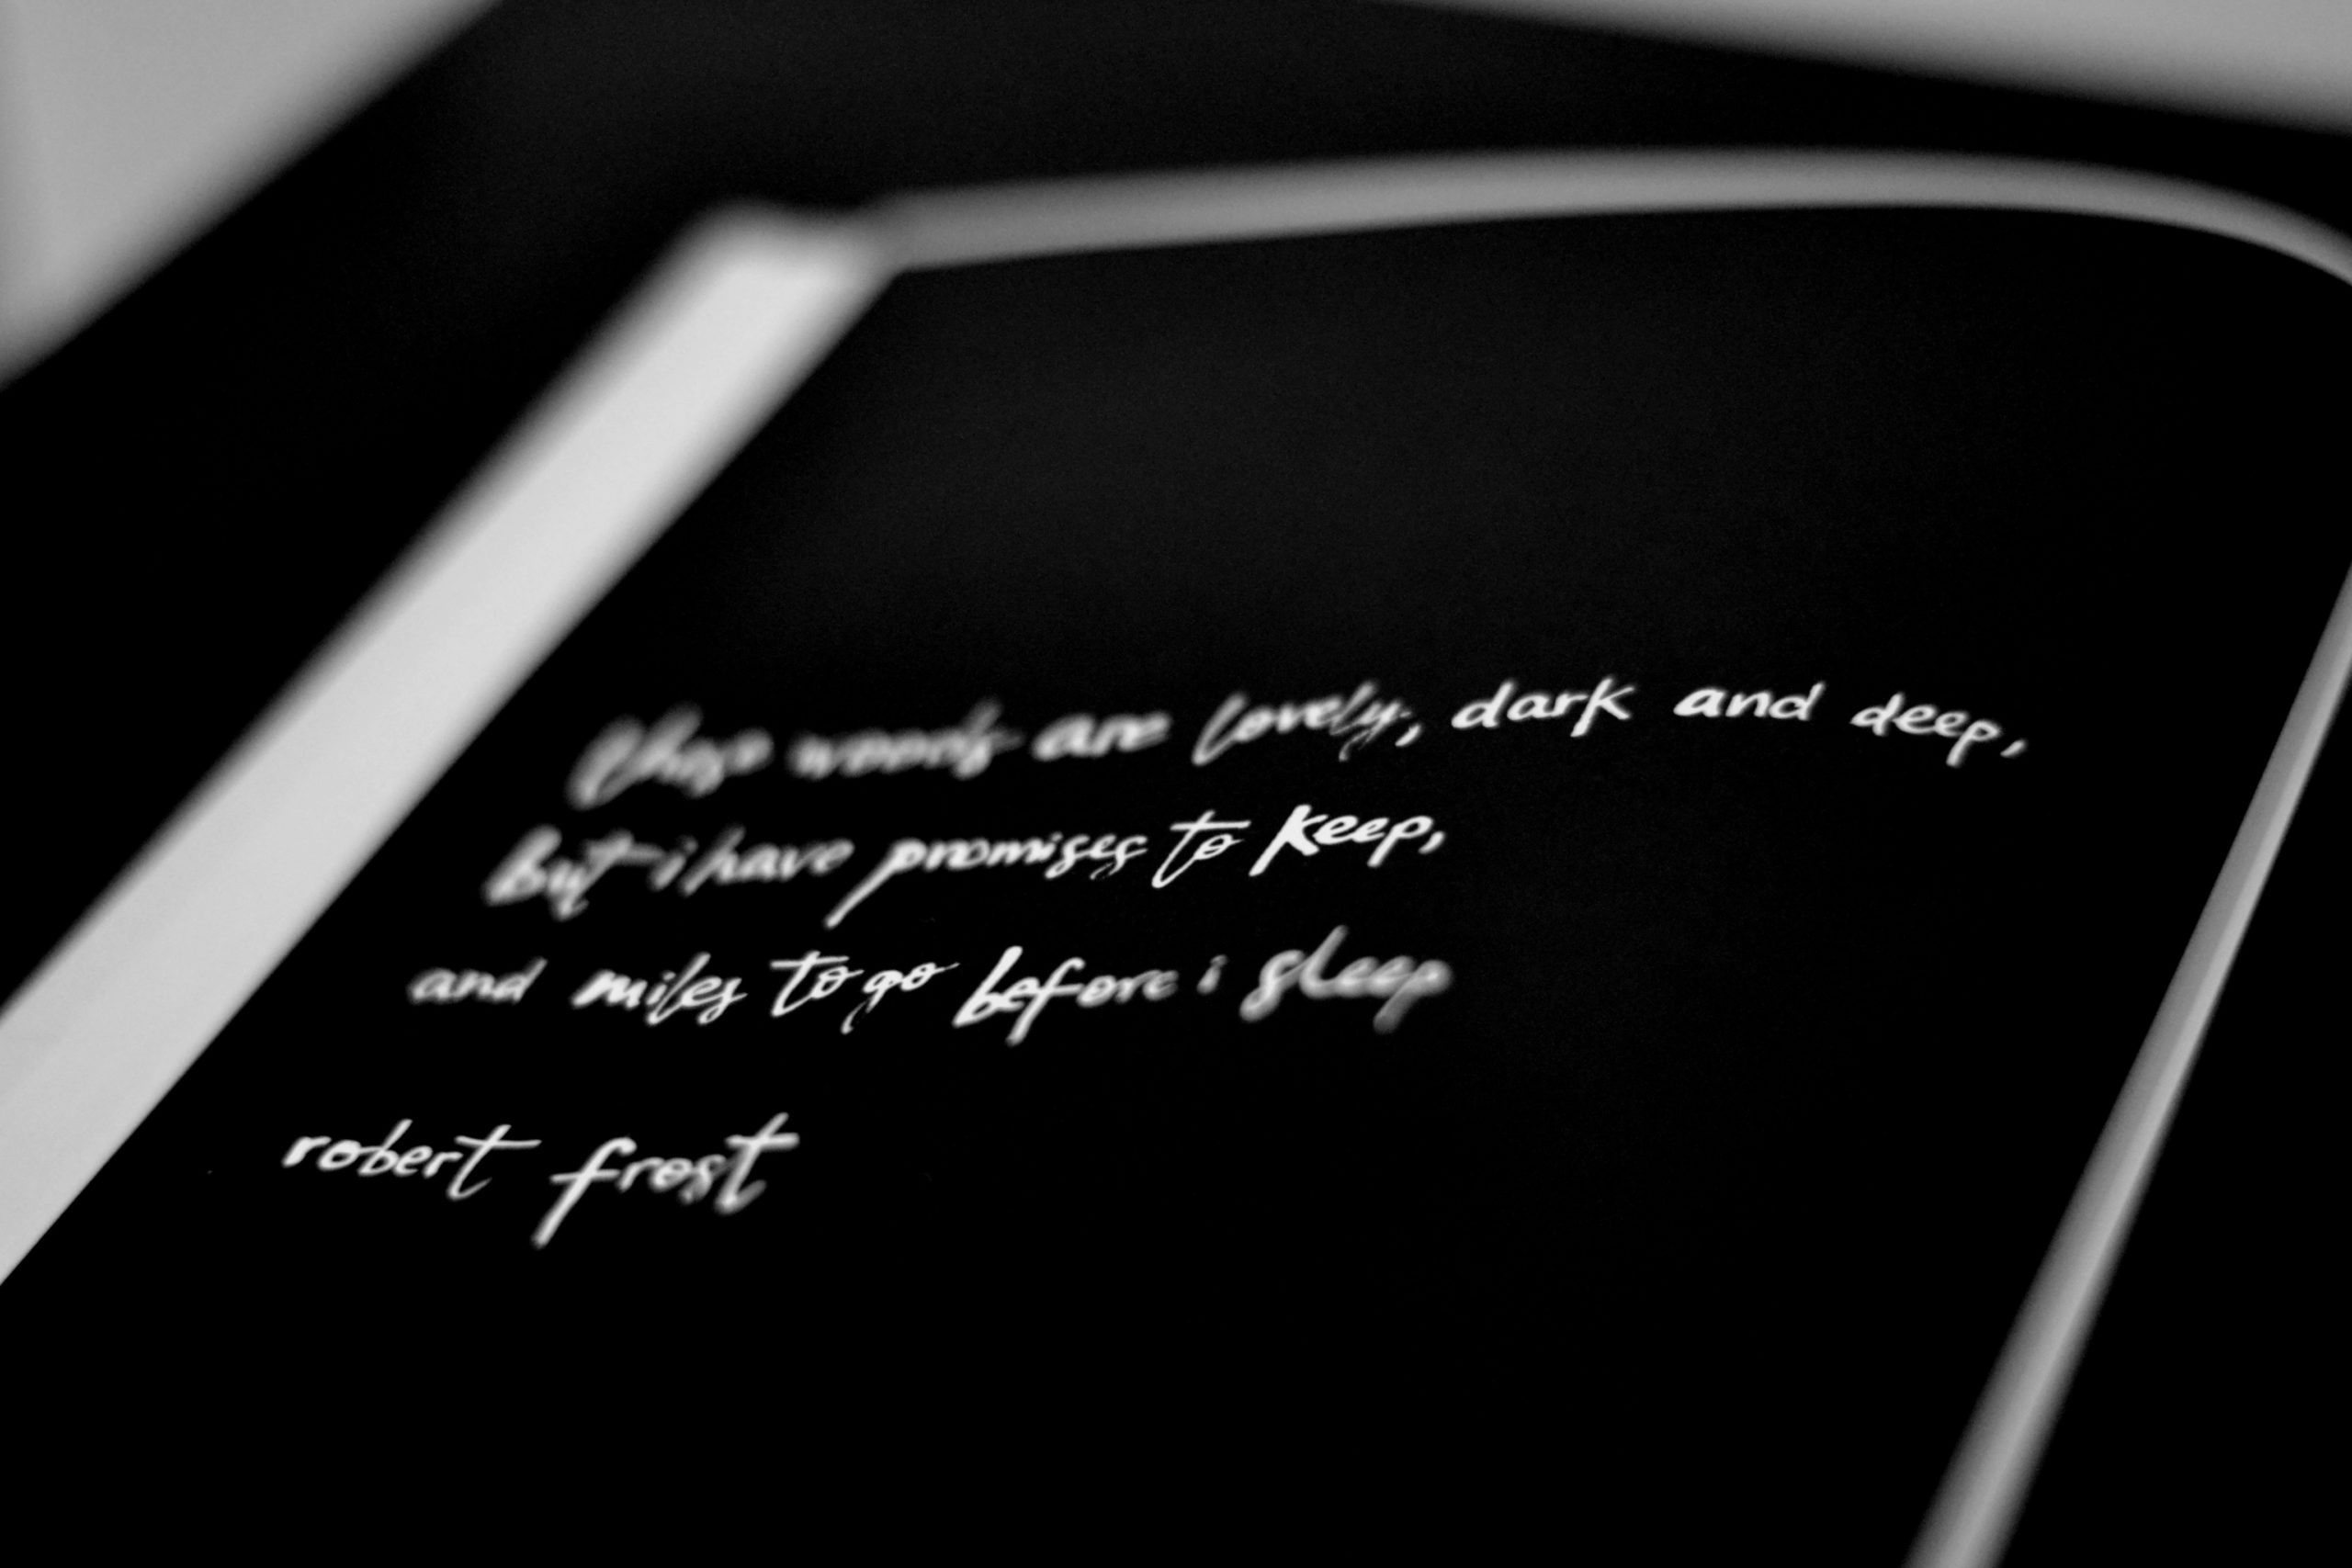 these woods are lovely, dark and deep,
but i have promises to keep,
and miles to go before i sleep
robert frost